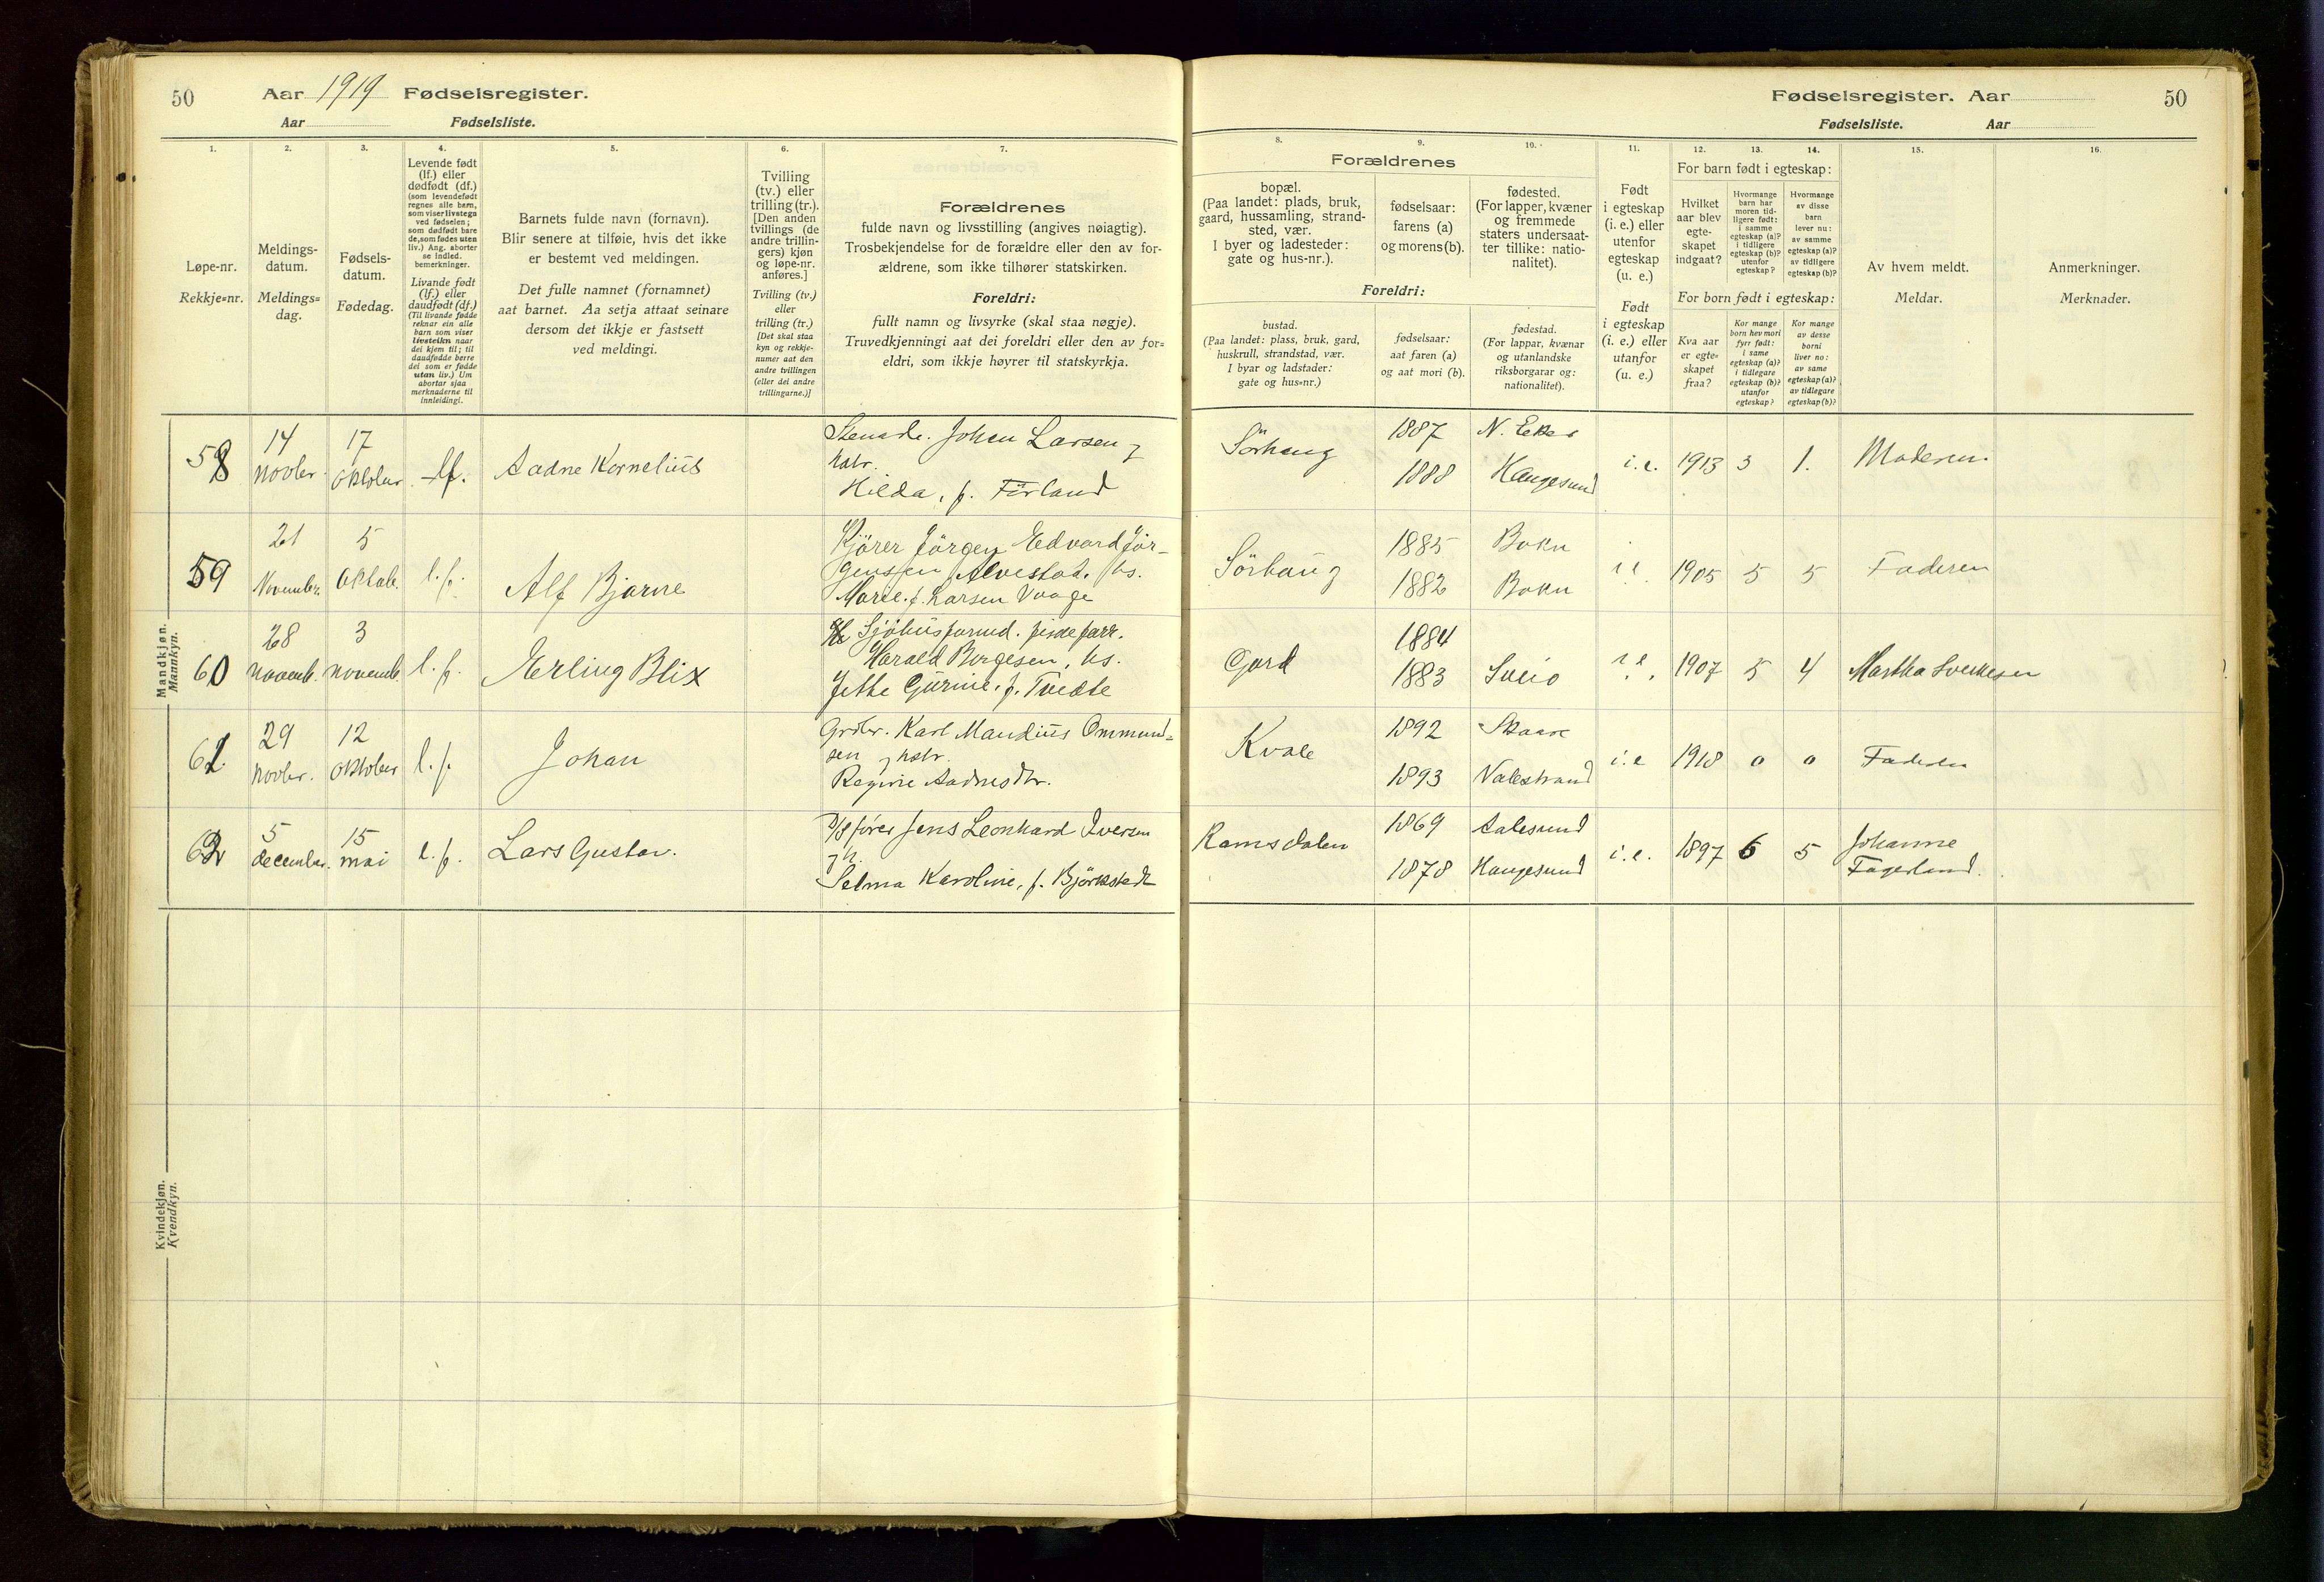 50
Aar 1919 Fødselsregister.
Aar Fødselsliste.
Fødselsregister. Aar
50
Fødselsliste. Aar
1.
Løpe-nr.
Rekkje=nr.
2.
Meldings-
datum.
Meldings=
dag.
3.
Fødsels-
datum.
Fødedag.
4.
Levende født
(lf.) eller
dødfødt (df.)
(som levendefødt
regnes alle barn,
som viser livstegn
ved fødselen;
som dødfødt bare
de, som fødes uten
liv.) Ang. aborter
se indled.
bemerkninger.
Livande født
(lf.) eller
daudfødt (df.)
(Til livande fødde
reknar ein alle
barn som viser
livsteikn naar
dei kjem til; til
daudfødde berre
dei som er fødde
utan liv.) Um
abortar sjaa
merknaderne til
innleidingi.
5.
Barnets fulde navn (fornavn).
Blir senere at tilføie, hvis det ikke
er bestemt ved meldingen.
Det fulle namnet (fornamnet)
aat barnet. Aa setja attaat seinare
dersom det ikkje er fastsett
ved meldingi.
6.
Tvilling
(tv.) eller
trilling (tr.).
[Den anden
tvillings (de
andre trillin-
gers) kjøn
og løpe-nr.
anføres.]
Tvilling (tv.)
eller
trilling (tr.)
[Det skal staa
kyn og rekkje-
numer aat den
andre tvillingen
(eller dei andre
trillingarne.)]
7.
Forældrenes
fulde navn og livsstilling (angives nøiagtig).
Trosbekjendelse for de forældre eller den av for-
ældrene, som ikke tilhører statskirken.
Foreldri:
fullt namn og livsyrke (skal staa nøgje).
Truvedkjenningi aat dei foreldri eller den av for=
eldri, som ikkje høyrer til statskyrkja.
Forældrenes
8.
bopæl.
(Paa landet: plads, bruk,
gaard, hussamling, strand-
sted, vær.
I byer og ladesteder:
gate og hus-nr.).
Foreldri:
bustad.
(Paa landet: plass, bruk, gard,
huskrull, strandstad, vær.
I byar og ladstader:
gate og hus=nr.)
9.
fødselsaar:
farens (a)
og morens (b).
fødselsaar:
aat faren (a)
og aat mori (b).
10.
fødested.
(For lapper, kvæner
og fremmede
staters undersaat-
ter tillike: natio-
nalitet).
fødestad.
(For lappar, kvænar
og utanlandske
riksborgarar og:
nationalitet).
11.
Født
i egteskap
(i. e.) eller
utenfor
egteskap
(u. e.)
Født
i egteskap
(i. e.) eller
utanfor
(u. e.)
For barn født i egteskap:
12.
Hvilket
aar blev
egte-
skapet
indgaat?
13.
Hvormange
barn har
moren tid-
ligere født:
i samme
egteskap (a)?
i tidligere
egteskap (b)?
utenfor
egteskap?
14.
Hvormange
av disse
barn
lever nu:
av samme
egteskap (a)?
av tidligere
egteskap (b)?
For born født i egteskap:
Kva aar
er egte-
skapet
fraa?
Kor mange
born hev mori
fyrr født:
i same
egteskap (a)?
i tidlegare
egteskap (b)?
utanfor
egteskap?
Kor mange
av desse
borni
liver no:
av same
egteskap (a)?
av tidlegare
egteskap (b)?
15.
Av hvem meldt.
Meldar.
16.
Anmerkninger.
Merknader.
Mandkjøn.
Mannkyn.
58 14 novbr. 17 oktober lf. Aadne Kornelius
Johan Larsen og
hstr.
Hilda, f. Førland
Sørhaug 1887 N. Eker
1888 Haugesund
i.e. 1913 3 1. Moderen.
59 21 Novembr. 5 Oktob. l.f. Alf Bjarne
Kjører Jørgen Edvard Jør-
gensen Alvestad. hs.
Marie f. Larsen Vaage
Sørhaug 1885 Bokn
1882 Bokn
i.e. 1905 5 5 Faderen
60 28 novemb. 3 novemb. l.f. Erling Blix
Harald Børgesen, hs.
Jette Gurine, f. Tvedte
Gard 1884
1883 Sveio
i.e. 1907 5 4 Martha Sveitesen
61. 29 novbr. 12 oktober l.f. Johan
Grdbr. Karl Mandius Ommund=
sen og hstr.
Regine Aadnesdtr.
Kvale 1892 Skaare
1893 Valestrand
i.e 1918 0 0 Faderen
62 5 december. 15 mai l.f. Lars Gustav.
D/S fører Jens Leonhard Iversen
og h.
Selma Karoline, f. Bjørkstedt
Ramsdalen 1869 Aalesund
1878 Haugesund
i.e. 1897 6 5 Johanne
Fagerland.
Kvindekjøn.
Kvendkyn.